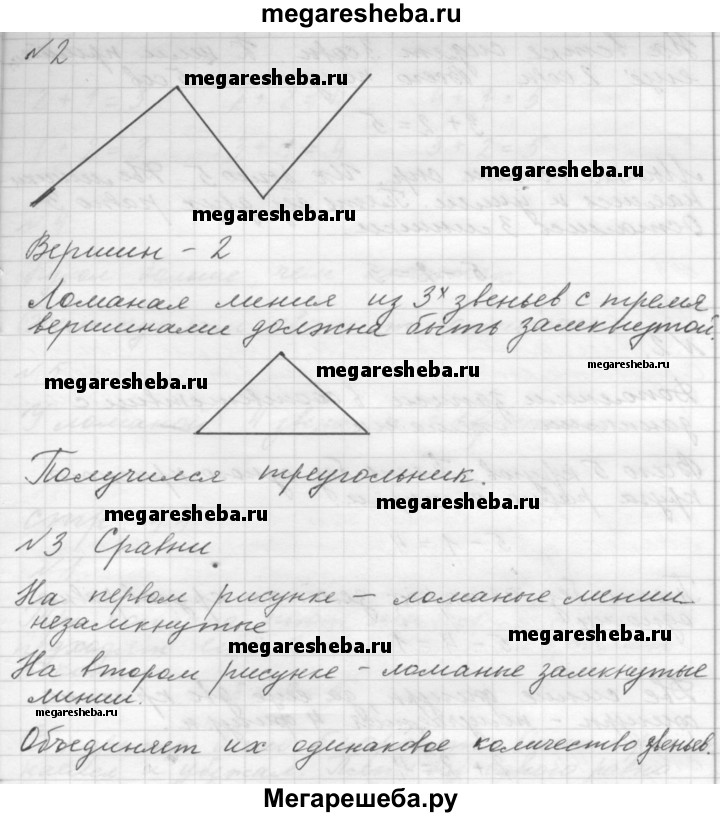 megaresheba.ru
№2
megaresheba.ru
megaresheba.ru
megaresheba.ru
Вершин – 2
Ломаная линия из 3х звеньев с тремя
вершинами должна быть замкнутой.
megaresheba.ru
megaresheba.ru
megaresheba.ru
Получился треугольник.
megaresheba.ru
megaresheba.ru
№3 Сравни
На первом рисунке – ломаные линии
незамкнутые
megaresheba.ru
megaresheba.ru
На втором рисунке – ломаные замкнутые
линии.
megaresheba.ru
Объединяет их одинаковое количество звеньев.
Мегарешеба.ру